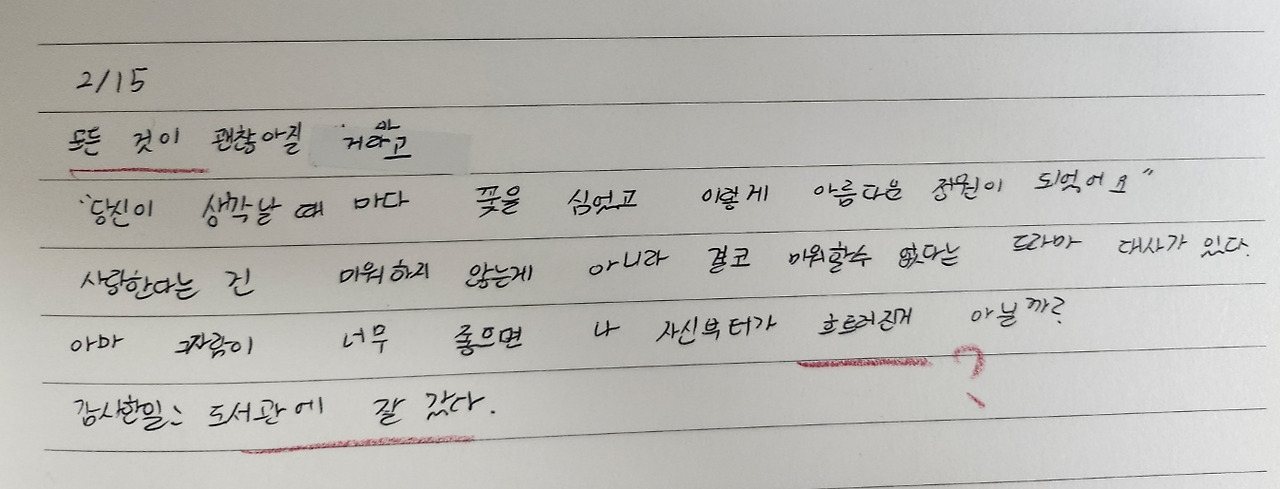 2/15
모든 것이 괜찮아질 거라고
"당신이 생각날 때 마다 꽃을 심었고 이렇게 아름다운 정원이 되었어요"
사랑한다는 건 미워하지 않는게 아니라 결코 미워할수 없다는 드라마 대사가 있다.
아마 너무 좋으면 나 자신부터가 흐트러진게 아닐까?
?
감사한일: 도서관에 잘 갔다.